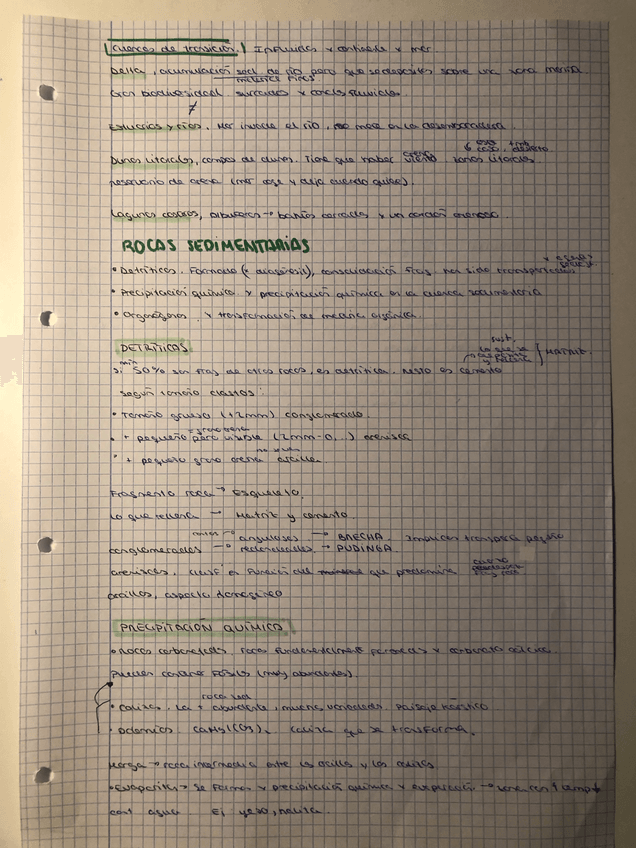 Cuencas de transición. Influidas x continente y mar.
Delta, acumulación sed. de río para que se deposite sobre una zona marina
materiales finos
Gran biodiversidad surcados x canales fluviales.
Estuarios y rías. Mar invade el río, no mares en la desembocadura
Dunas litorales, campos de dunas. Tiene que haber viento zonas litorales
arena
reservorio de arena (mar coge y deja cuando quiere).
Lagunas costeras, albuferas → bahías cerradas x un cordón arenoso.
ROCAS SEDIMENTARIAS
• Detríticos. Formado (+ diagénesis), consolidación frag. han sido transportados
• Precipitación química x precipitación química en la cuenca sedimentaria
• Organógenos. x transformación de materia orgánica.
DETRÍTICAS
min
Si 50% son frag de otras rocas, es detrítica. Resto es cemento
sust.
MATRIZ.
según tamaño clastos:
• Tamaño grueso (+2mm) conglomerado.
= grano arena
• + pequeño pero visible (2mm-0,...) arenisca
no visible
• + pequeño grano arena arcilla
Fragmento roca → Esqueleto.
Lo que rellena → Matriz y cemento.
cantos → angulosos → BRECHA. Implican transporte pequeño
conglomerados → redondeados → PUDINGA
areniscas, clasif en función del mineral que predomina
cuarzo
feldespatos
frag roca
arcillas, aspecto homogéneo
PRECIPITACIÓN QUÍMICA
• Rocas carbonatadas. rocas fundamentalmente formadas x carbonato cálcico.
Pueden contener fósiles (muy abundantes).
roca sed
• Caliza. La + abundante, muchas variedades. Paisaje kárstico
• Dolomías. CaMg(CO3)2 caliza que se transforma.
Marga → roca intermedia entre las arcillas y las calizas
• Evaporitas → Se forman x precipitación química x evaporación →
cant agua Ej: yeso, halita.